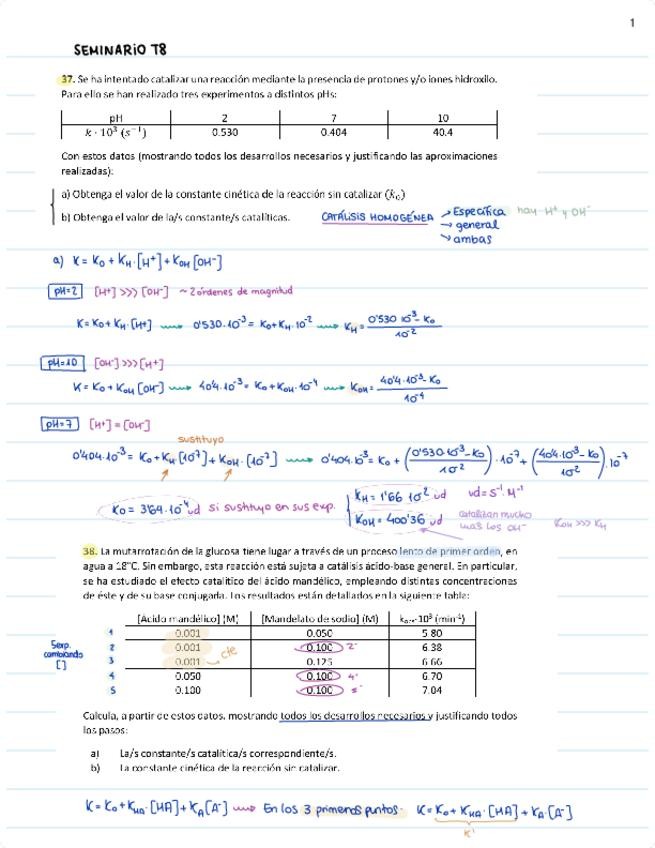 1
SEMINARIO T8
37. Se ha intentado catalizar una reacción mediante la presencia de protones y/o iones hidroxilo.
Para ello se han realizado tres experimentos a distintos pHs:
pH 2 7 10
k · 10³ (s⁻¹) 0.530 0.404 40.4
Con estos datos (mostrando todos los desarrollos necesarios y justificando las aproximaciones
realizadas):
a) Obtenga el valor de la constante cinética de la reacción sin catalizar (k₀)
b) Obtenga el valor de la/s constante/s catalíticas.
CATÁLISIS HOMOGÉNEA → Específica hay H⁺ y OH⁻
→ general
→ ambas
a) K = K₀ + K_H · [H⁺] + K_OH [OH⁻]
pH=2 [H⁺] >>> [OH⁻] ~ 2 órdenes de magnitud
K = K₀ + K_H · [H⁺] → 0'530 · 10⁻³ = K₀ + K_H · 10⁻² → K_H = (0'530 · 10⁻³ - K₀) / 10⁻²
pH=10 [OH⁻] >>> [H⁺]
K = K₀ + K_OH [OH⁻] → 40'4 · 10⁻³ = K₀ + K_OH · 10⁻⁴ → K_OH = (40'4 · 10⁻³ - K₀) / 10⁻⁴
pH=7 [H⁺] = [OH⁻]
sustituyo
0'404 · 10⁻³ = K₀ + K_H · [10⁻⁷] + K_OH · [10⁻⁷] → 0'404 · 10⁻³ = K₀ + ((0'530 · 10⁻³ - K₀) / 10⁻²) · 10⁻⁷ + ((40'4 · 10⁻³ - K₀) / 10⁻²) · 10⁻⁷
K₀ = 3'64 · 10⁻⁴ ud si sustituyo en sus exp.
K_H = 1'66 · 10⁻² ud ud = s⁻¹ · M⁻¹
K_OH = 400'36 ud catalizan mucho
más los OH⁻ K_OH >>> K_H
38. La mutarrotación de la glucosa tiene lugar a través de un proceso lento de primer orden, en
agua a 18°C. Sin embargo, esta reacción está sujeta a catálisis ácido-base general. En particular,
se ha estudiado el efecto catalítico del ácido mandélico, empleando distintas concentraciones
de éste y de su base conjugada. Los resultados están detallados en la siguiente tabla:
[Ácido mandélico] (M) [Mandelato de sodio] (M) · 10³ (min⁻¹)
1 0.001 0.050 5.80
2 0.001 0.100 2° 6.38
3 0.001 cte 0.125 6.66
4 0.050 0.100 4° 6.70
5 0.100 0.100 5° 7.04
5 exp.
cambiando
[ ]
Calcula, a partir de estos datos, mostrando todos los desarrollos necesarios y justificando todos
los pasos:
a) La/s constante/s catalítica/s correspondiente/s.
b) La constante cinética de la reacción sin catalizar.
K = K₀ + K_HA · [HA] + K_A [A⁻] → En los 3 primeros puntos · K = K₀ + K_HA · [HA] + K_A · [A⁻]
K'